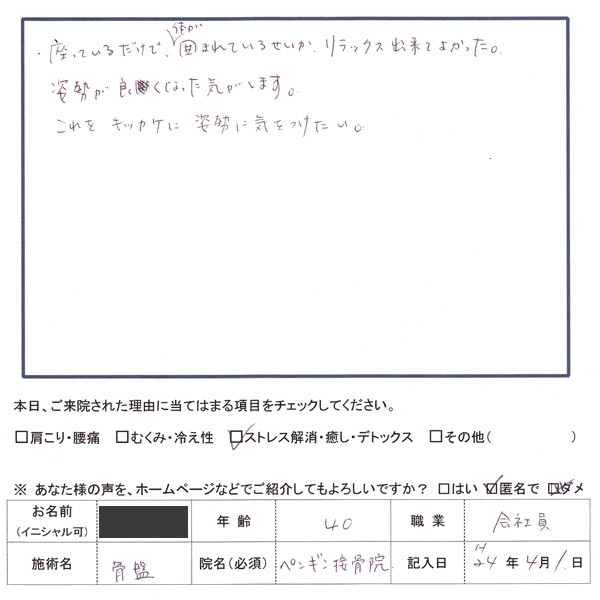 ・座っているだけで、体が囲まれているせいか、リラックス出来てよかった。
姿勢が良くなった気がします。
これをキッカケに姿勢に気をつけたい。
本日、ご来院された理由に当てはまる項目をチェックしてください。
□肩こり・腰痛 □むくみ・冷え性 ☑ストレス解消・癒し・デトックス □その他( )
※ あなた様の声を、ホームページなどでご紹介してもよろしいですか? □はい ☑匿名で □ダメ
お名前 (イニシャル可) 年齢 40 職業 会社員
施術名 骨盤 院名(必須) ペンギン接骨院 記入日 H24年4月1日